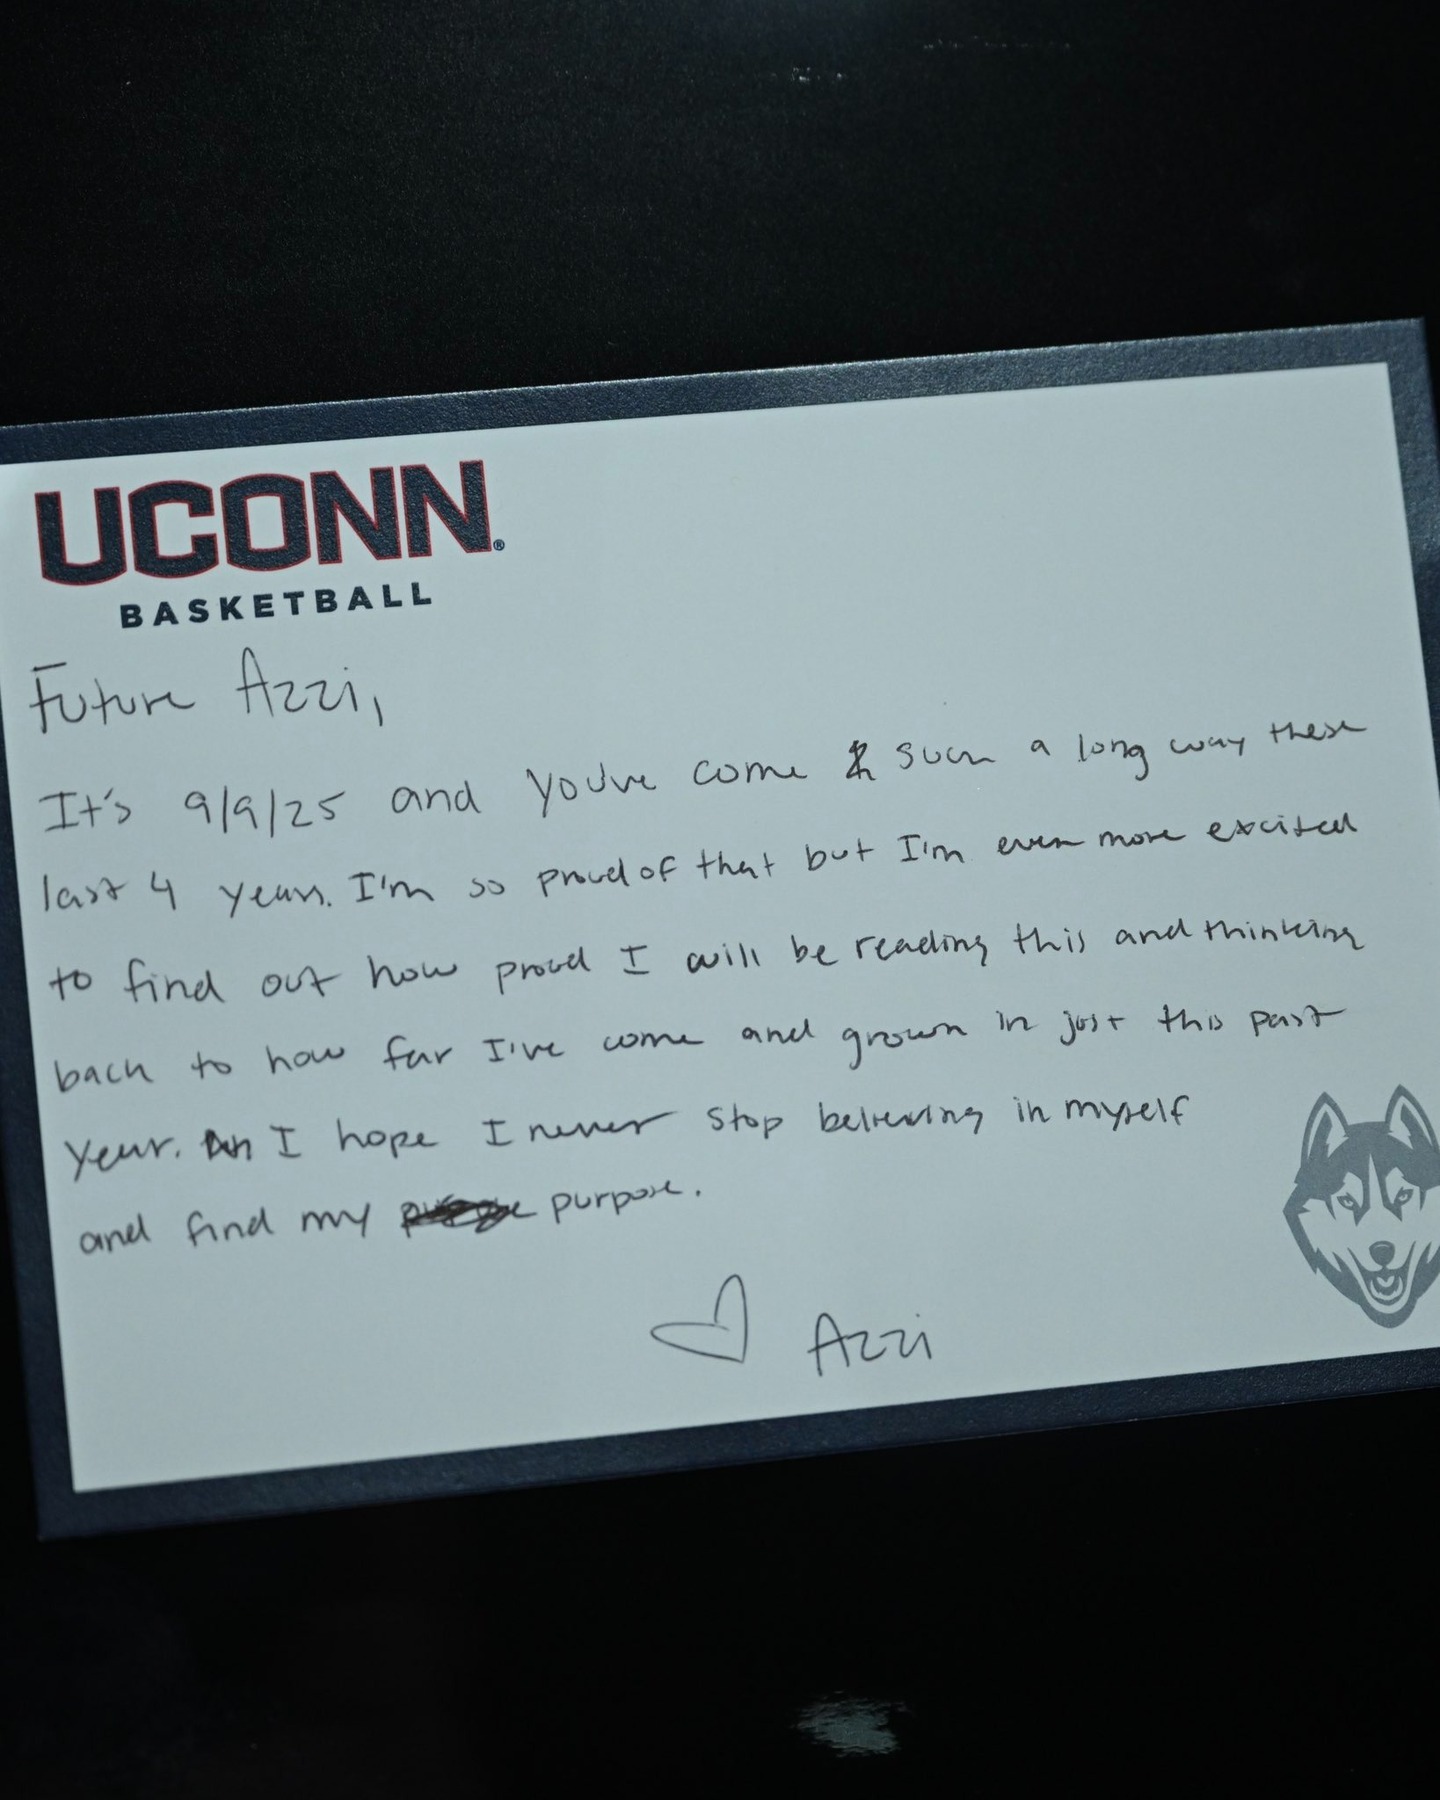 UCONN®
BASKETBALL
Future Azzi,
It's 9/9/25 and you've come such a long way these
last 4 years. I'm so proud of that but I'm even more excited
to find out how proud I will be reading this and thinking
back to how far I've come and grown in just this past
year. I hope I never stop believing in myself
and find my purpose.
♡ Azzi